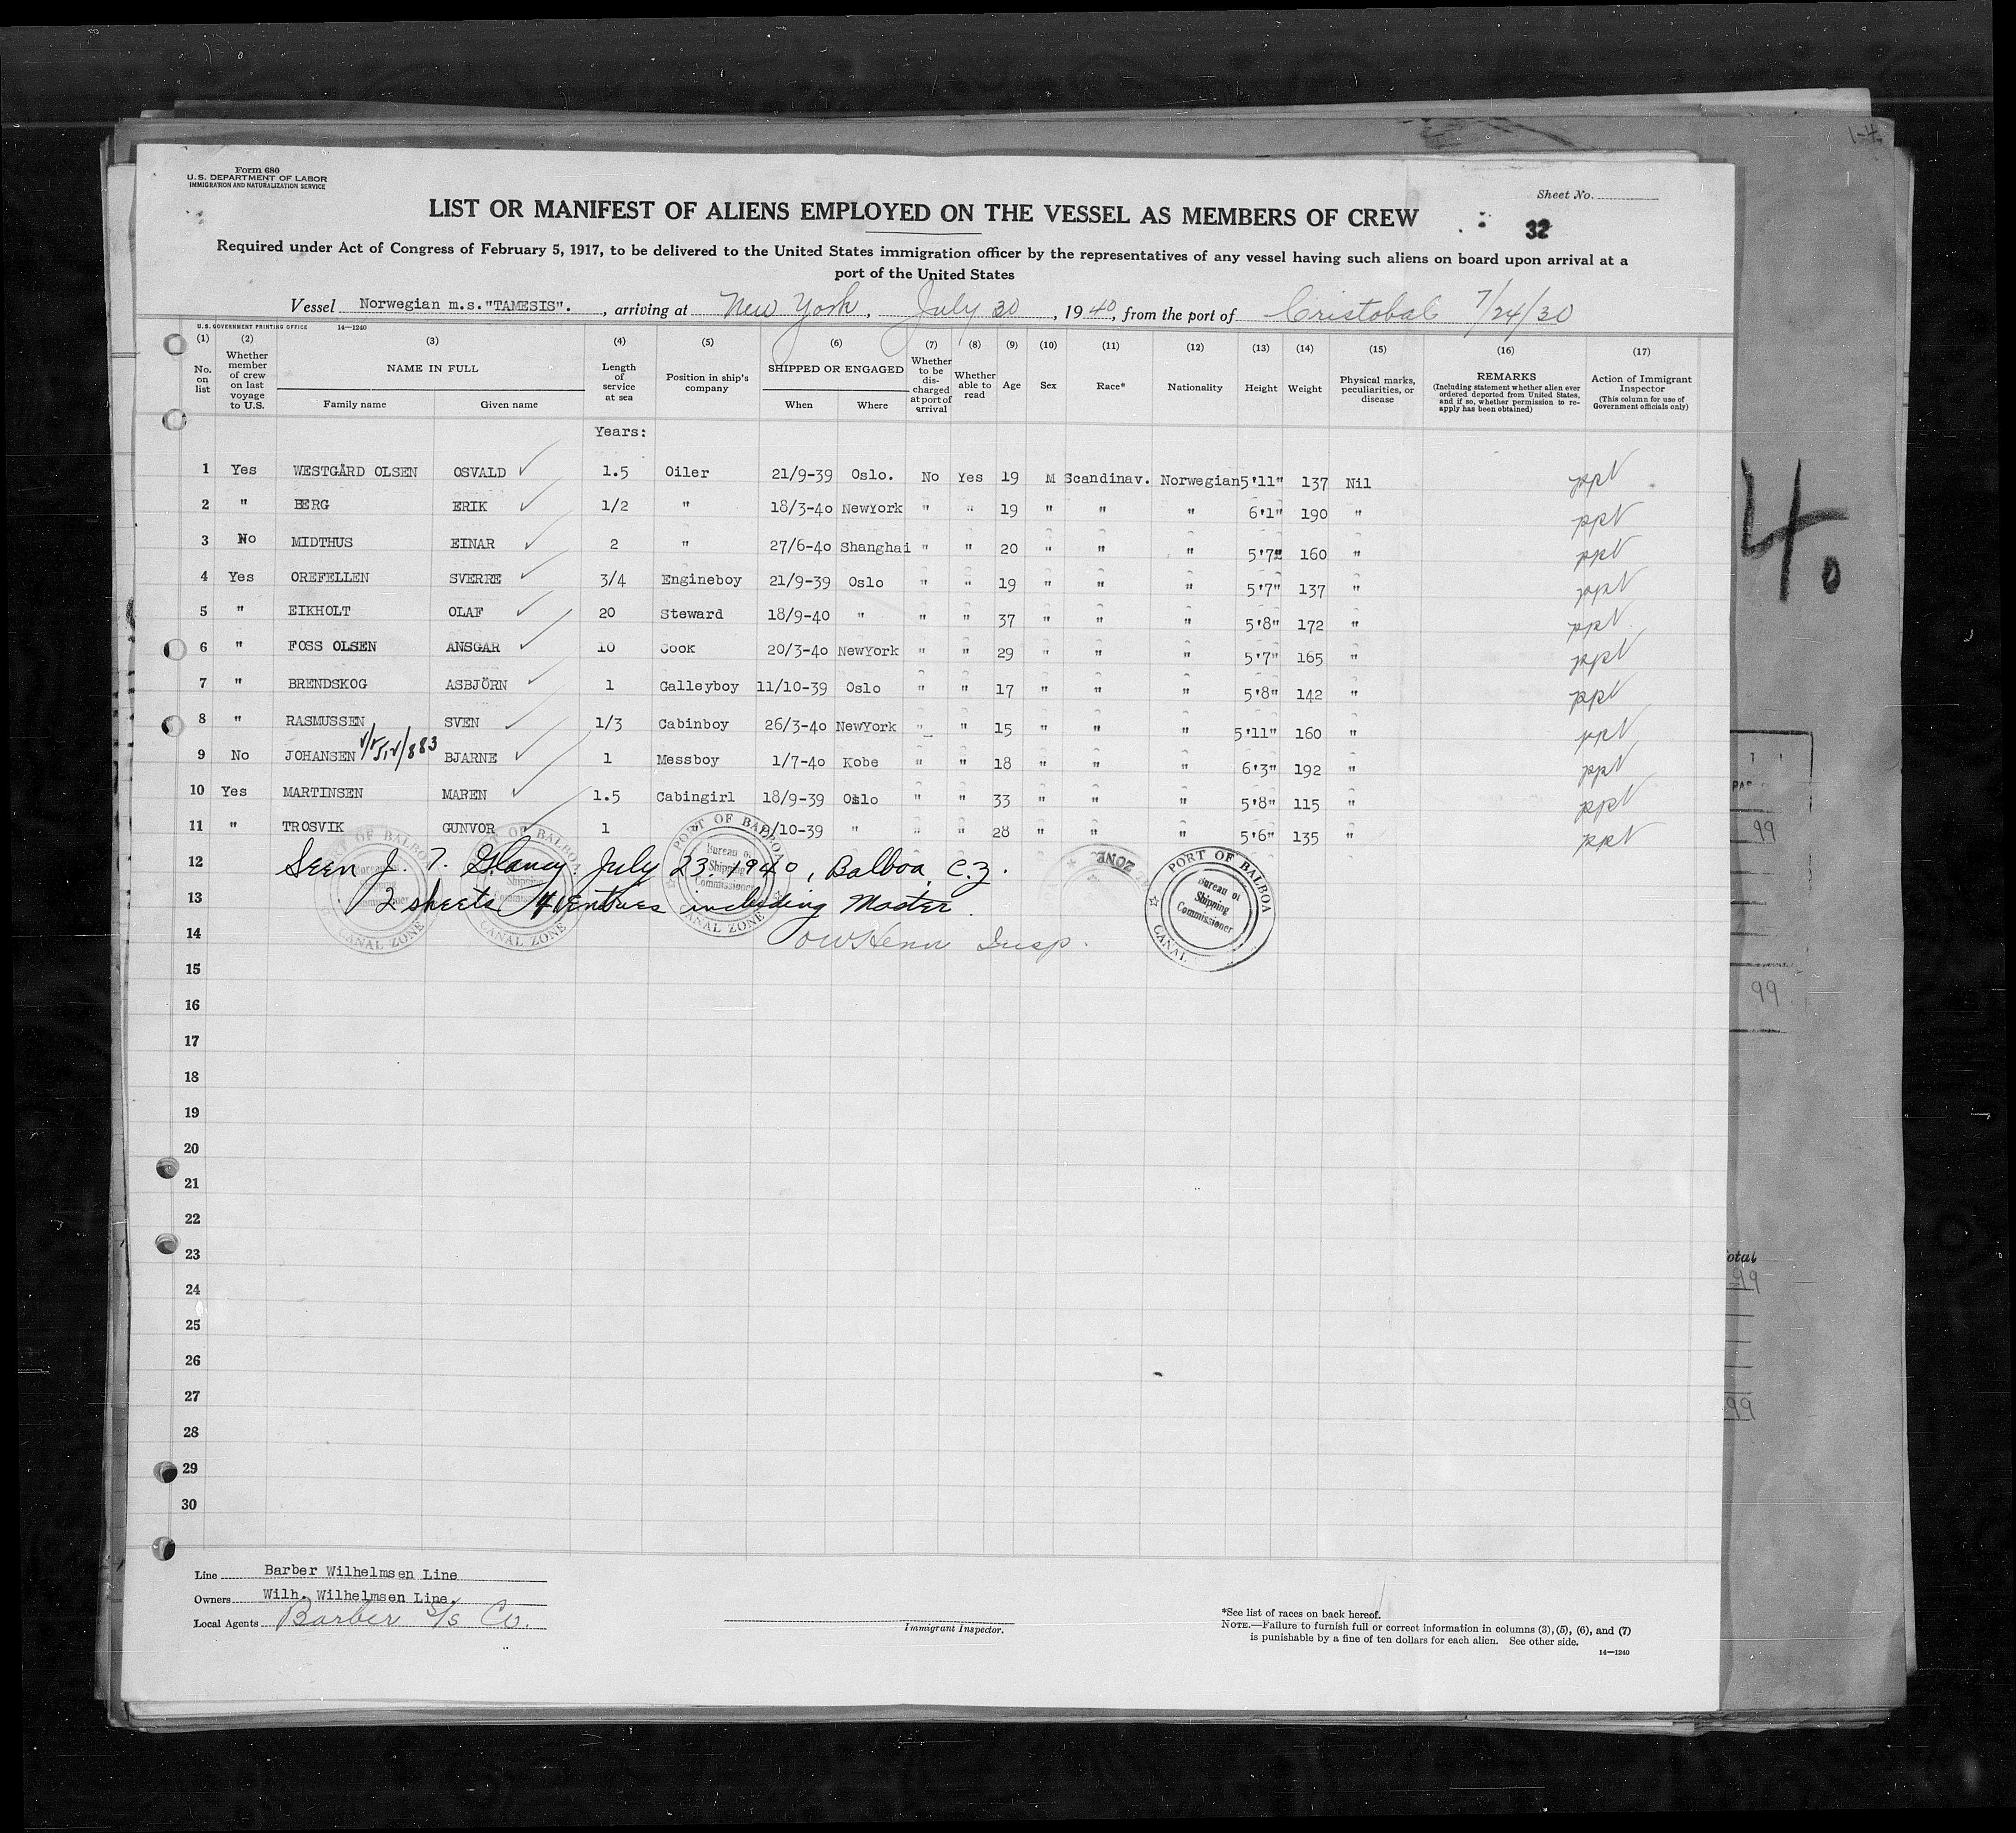 Form 680
U. S. DEPARTMENT OF LABOR
IMMIGRATION AND NATURALIZATION SERVICE
Sheet No.
LIST OR MANIFEST OF ALIENS EMPLOYED ON THE VESSEL AS MEMBERS OF CREW
32
Required under Act of Congress of February 5, 1917, to be delivered to the United States immigration officer by the representatives of any vessel having such aliens on board upon arrival at a
port of the United States
Vessel Norwegian m.s."TAMESIS". , arriving at New York , July 30 , 1940, from the port of Cristobal 7/24/30
U. S. GOVERNMENT PRINTING OFFICE 14—1240
(1) (2) (3) (4) (5) (6) (7) (8) (9) (10) (11) (12) (13) (14) (15) (16) (17)
No. on list
Whether member of crew on last voyage to U.S.
NAME IN FULL
Family name Given name
Length of service at sea
Position in ship's company
SHIPPED OR ENGAGED
When Where
Whether to be discharged at port of arrival
Whether able to read
Age
Sex
Race*
Nationality
Height
Weight
Physical marks, peculiarities, or disease
REMARKS
(Including statement whether alien ever ordered deported from United States, and if so, whether permission to re-apply has been obtained)
Action of Immigrant Inspector
(This column for use of Government officials only)
Years:
1 Yes WESTGÅRD OLSEN OSVALD 1.5 Oiler 21/9-39 Oslo. No Yes 19 M Scandinav. Norwegian 5'11" 137 Nil ppt
2 " BERG ERIK 1/2 " 18/3-40 NewYork " " 19 " " " 6'1" 190 " ppt
3 No MIDTHUS EINAR 2 " 27/6-40 Shanghai " " 20 " " " 5'7" 160 " ppt
4 Yes OREFELLEN SVERRE 3/4 Engineboy 21/9-39 Oslo " " 19 " " " 5'7" 137 " ppt
5 " EIKHOLT OLAF 20 Steward 18/9-40 " " " 37 " " " 5'8" 172 " ppt
6 " FOSS OLSEN ANSGAR 10 Cook 20/3-40 NewYork " " 29 " " " 5'7" 165 " ppt
7 " BRENDSKOG ASBJÖRN 1 Galleyboy 11/10-39 Oslo " " 17 " " " 5'8" 142 " ppt
8 " RASMUSSEN SVEN 1/3 Cabinboy 26/3-40 NewYork " " 15 " " " 5'11" 160 " ppt
9 No JOHANSEN BJARNE 1 Messboy 1/7-40 Kobe " " 18 " " " 6'3" 192 " ppt
10 Yes MARTINSEN MAREN 1.5 Cabingirl 18/9-39 Oslo " " 33 " " " 5'8" 115 " ppt
11 " TROSVIK GUNVOR 1 /10-39 " " " 28 " " " 5'6" 135 " ppt
12 Seen J. T. Glancy July 23, 1940, Balboa, C.Z.
13 2 sheets 41 entries including Master.
14 Insp.
PORT OF BALBOA
Bureau of Shipping Commissioner
CANAL ZONE
PORT OF BALBOA
Bureau of Shipping Commissioner
CANAL
ZONE
15
16
17
18
19
20
21
22
23
24
25
26
27
28
29
30
Line Barber Wilhelmsen Line
Owners Wilh. Wilhelmsen Line.
Local Agents Barber S/S Co.
Immigrant Inspector.
*See list of races on back hereof.
NOTE.—Failure to furnish full or correct information in columns (3), (5), (6), and (7)
is punishable by a fine of ten dollars for each alien. See other side.
14—1240
1-4
4.
99
99
99
99